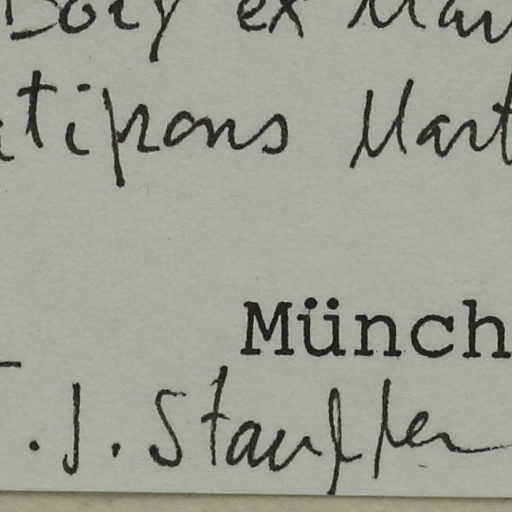 Bory ex Mar
tifrons Mart
Münch
. J. Stauffer